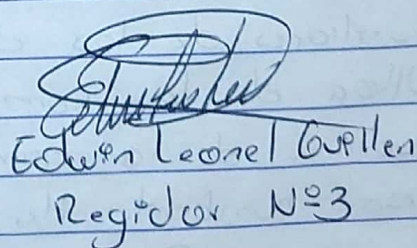 Edwin Leonel Guellen
Regidor Nº3